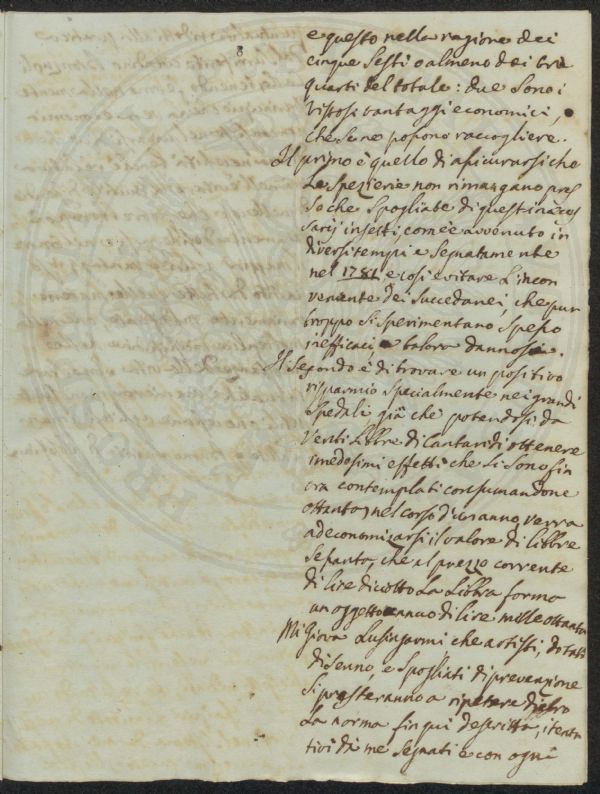 8
e questo nella ragione dei
cinque sesti o almeno dei tre
quarti del totale: due sono i
vistosi vantaggi economici,
che se ne possono raccogliere.
Il primo è quello di assicurarsi che
le spezierie non rimangano pres
so che spogliate di questi neces
sarij insetti, com'è avvenuto in
diversi tempi e segnatamente
nel 1781 e così evitare l'incon
veniente dei succedanei, che pur
troppo si sperimentano spesso
inefficaci, e talora dannosi.
Il secondo è di trovare un positivo
risparmio specialmente nei grandi
spedali già che potendosi da
venti libbre di Cantaridi ottenere
i medesimi effetti che si sono fin
ora contemplati consumandone
ottanta, nel corso di un anno, verrà
ad economizarsi il valore di libbre
sessanta, che al prezzo corrente
di lire diciotto la libbra forma
un oggetto annuo di lire mille ottanta
Mi giova lusingarmi che artisti, dotati
di senno, e spogliati di prevenzione
si presteranno a ripetere dietro
la norma fin qui descritta, i tenta
tivi da me segnati e con ogni